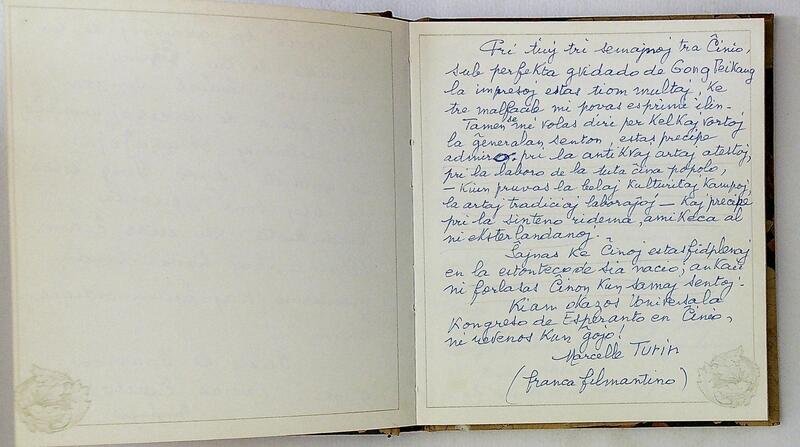 Pri tiuj tri semajnoj tra Ĉinio,
sub perfekta gvidado de Gong Peikang
la impresoj estas tiom multaj, ke
tre malfacile mi povas esprimi ilin-
Tamen se mi volas diri per kelkaj vortoj
la ĝeneralan senton, estas precipe
admiro pri la antikvaj artaj atestoj,
pri la laboro de la tuta ĉina popolo,
- kiun pruvas la belaj kulturitaj kampoj,
la artaj tradiciaj laboraĵoj - kaj precipe
pri la sinteno ridema, amikeca al
ni eksterlandanoj.
Ŝajnas ke Ĉinoj estas fidplenaj
en la estonteco de sia nacio, ankaŭ
ni forlasas Ĉinon kun samaj sentoj.
Kiam okazos Universala
Kongreso de Esperanto en Ĉinio,
ni revenos kun ĝojo!
Marcelle Turin
(franca filmantino)